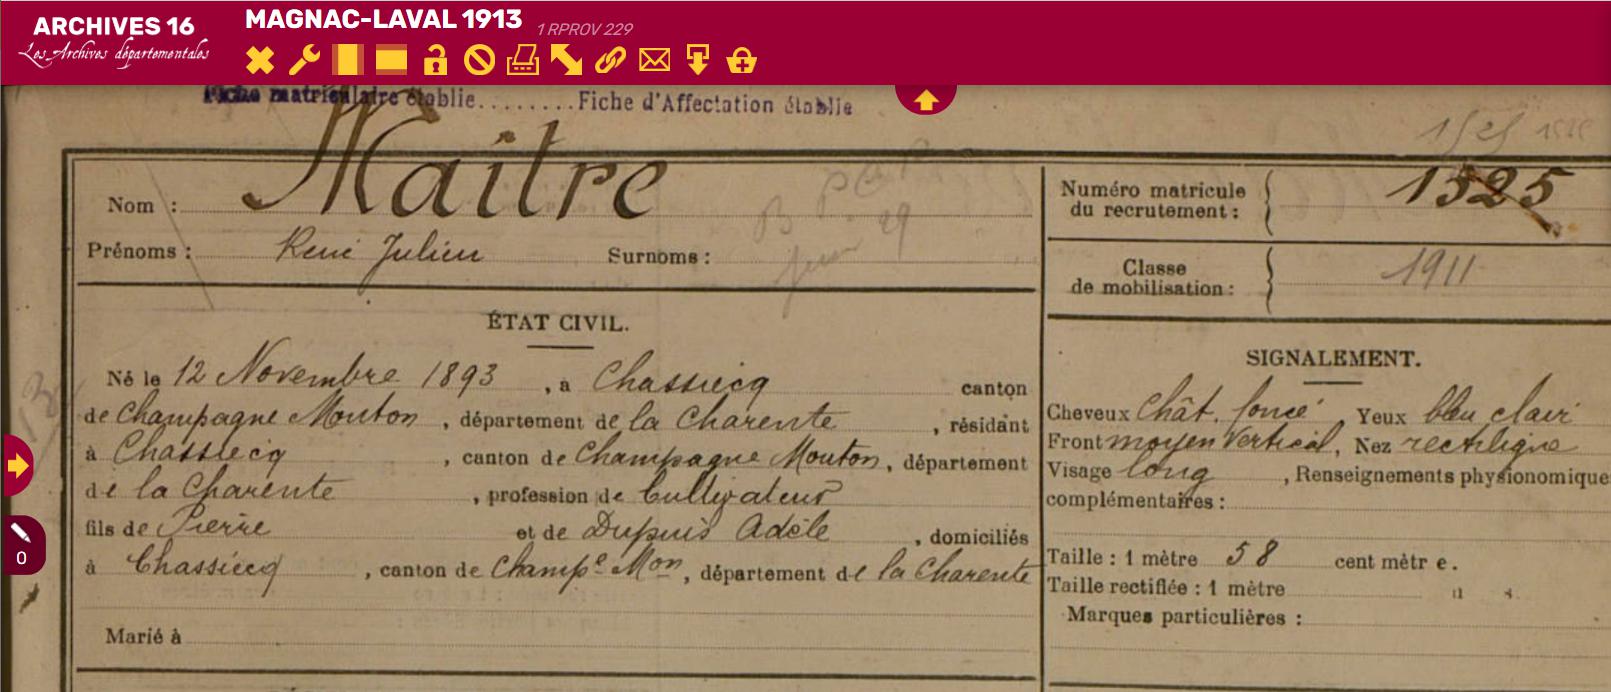 ARCHIVES 16
Les Archives départementales
MAGNAC-LAVAL 1913 1 RPROV 229
Fiche matriculaire établie........Fiche d'Affectation établie
Nom : Maître
Prénoms : René Julien Surnoms :
Numéro matricule du recrutement : 1525
Classe de mobilisation : 1911
ÉTAT CIVIL.
Né le 12 Novembre 1893, à Chassiecq canton
de Champagne Mouton, département de la Charente, résidant
à Chassiecq, canton de Champagne Mouton, département
de la Charente, profession de Cultivateur
fils de Pierre et de Dupuis Adèle, domiciliés
à Chassiecq, canton de Champe Mon, département de la Charente
Marié à
SIGNALEMENT.
Cheveux Chât. foncé, Yeux bleu clair
Front moyen Vertical, Nez rectiligne
Visage long, Renseignements physionomique
complémentaires :
Taille : 1 mètre 58 cent mètr e.
Taille rectifiée : 1 mètre
Marques particulières :
0